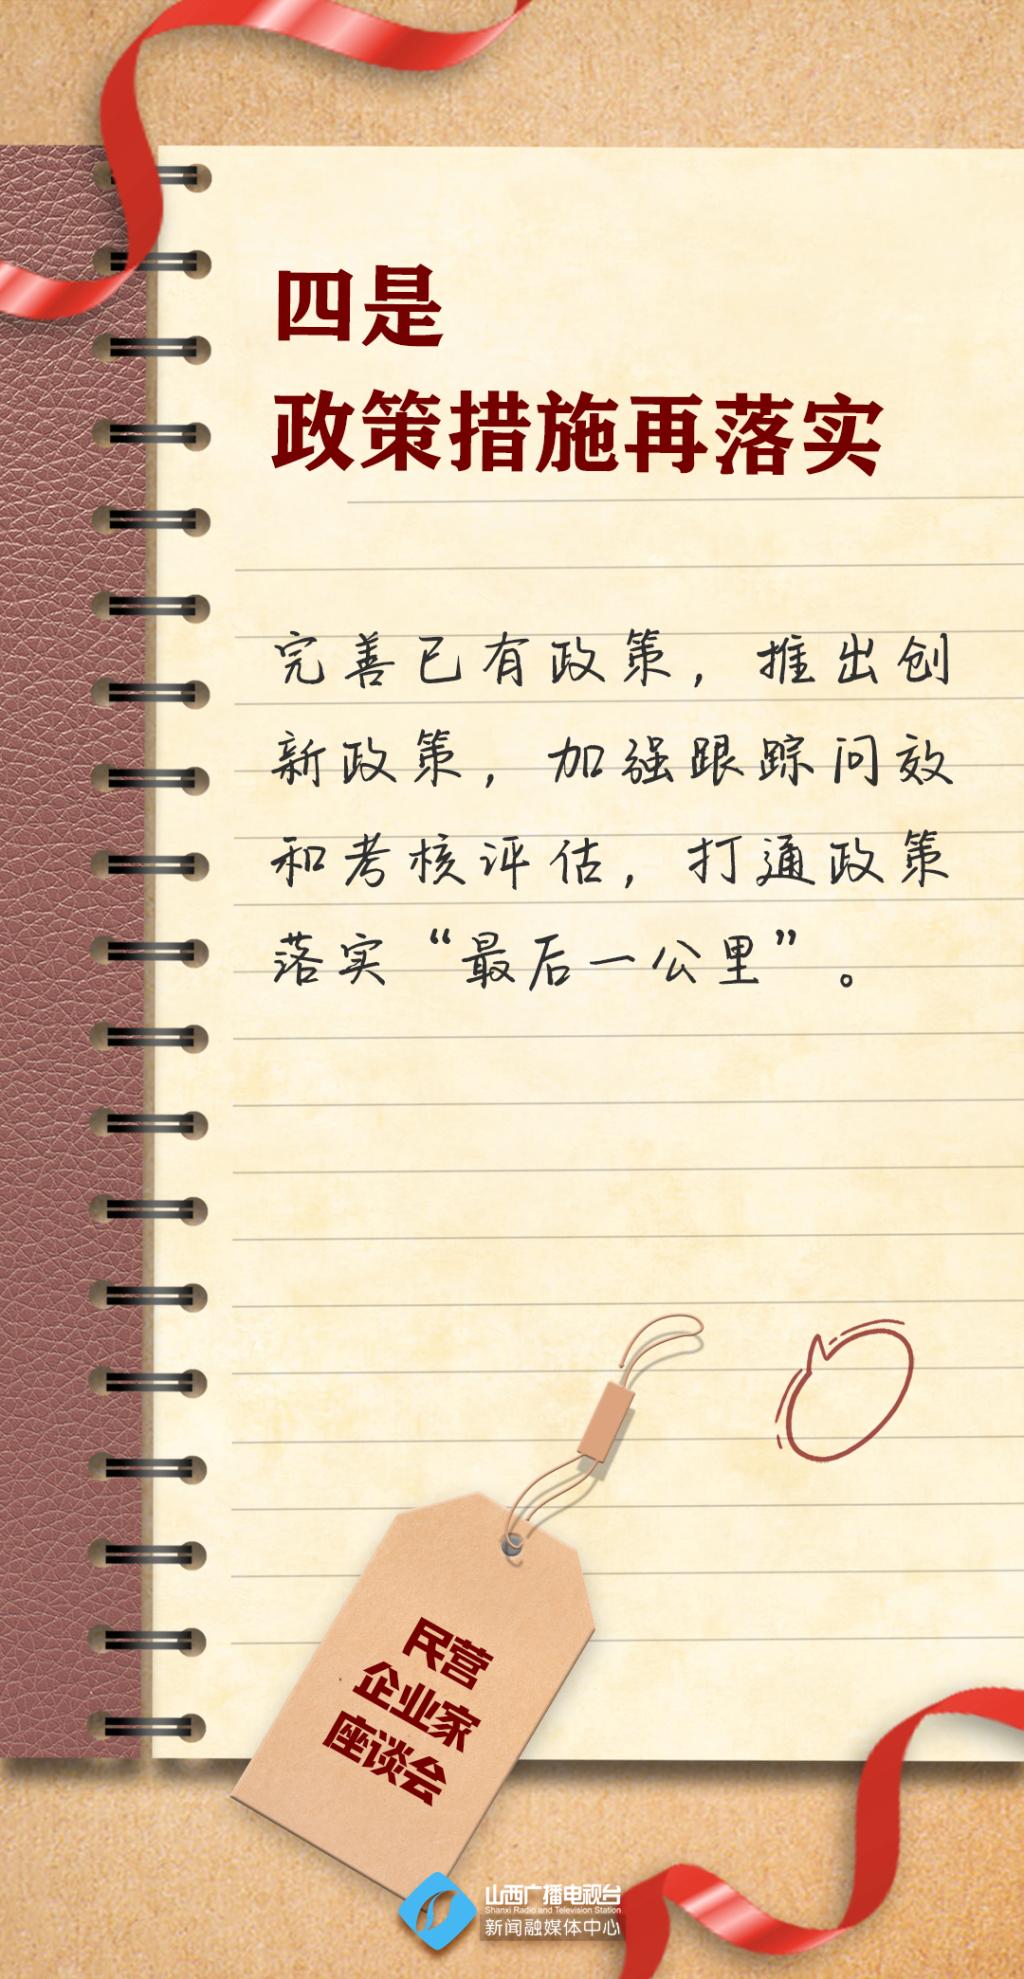 四是
政策措施再落实
完善已有政策，推出创
新政策，加强跟踪问效
和考核评估，打通政策
落实“最后一公里”。
民营
企业家
座谈会
山西广播电视台
Shanxi Radio and Television Station
新闻融媒体中心